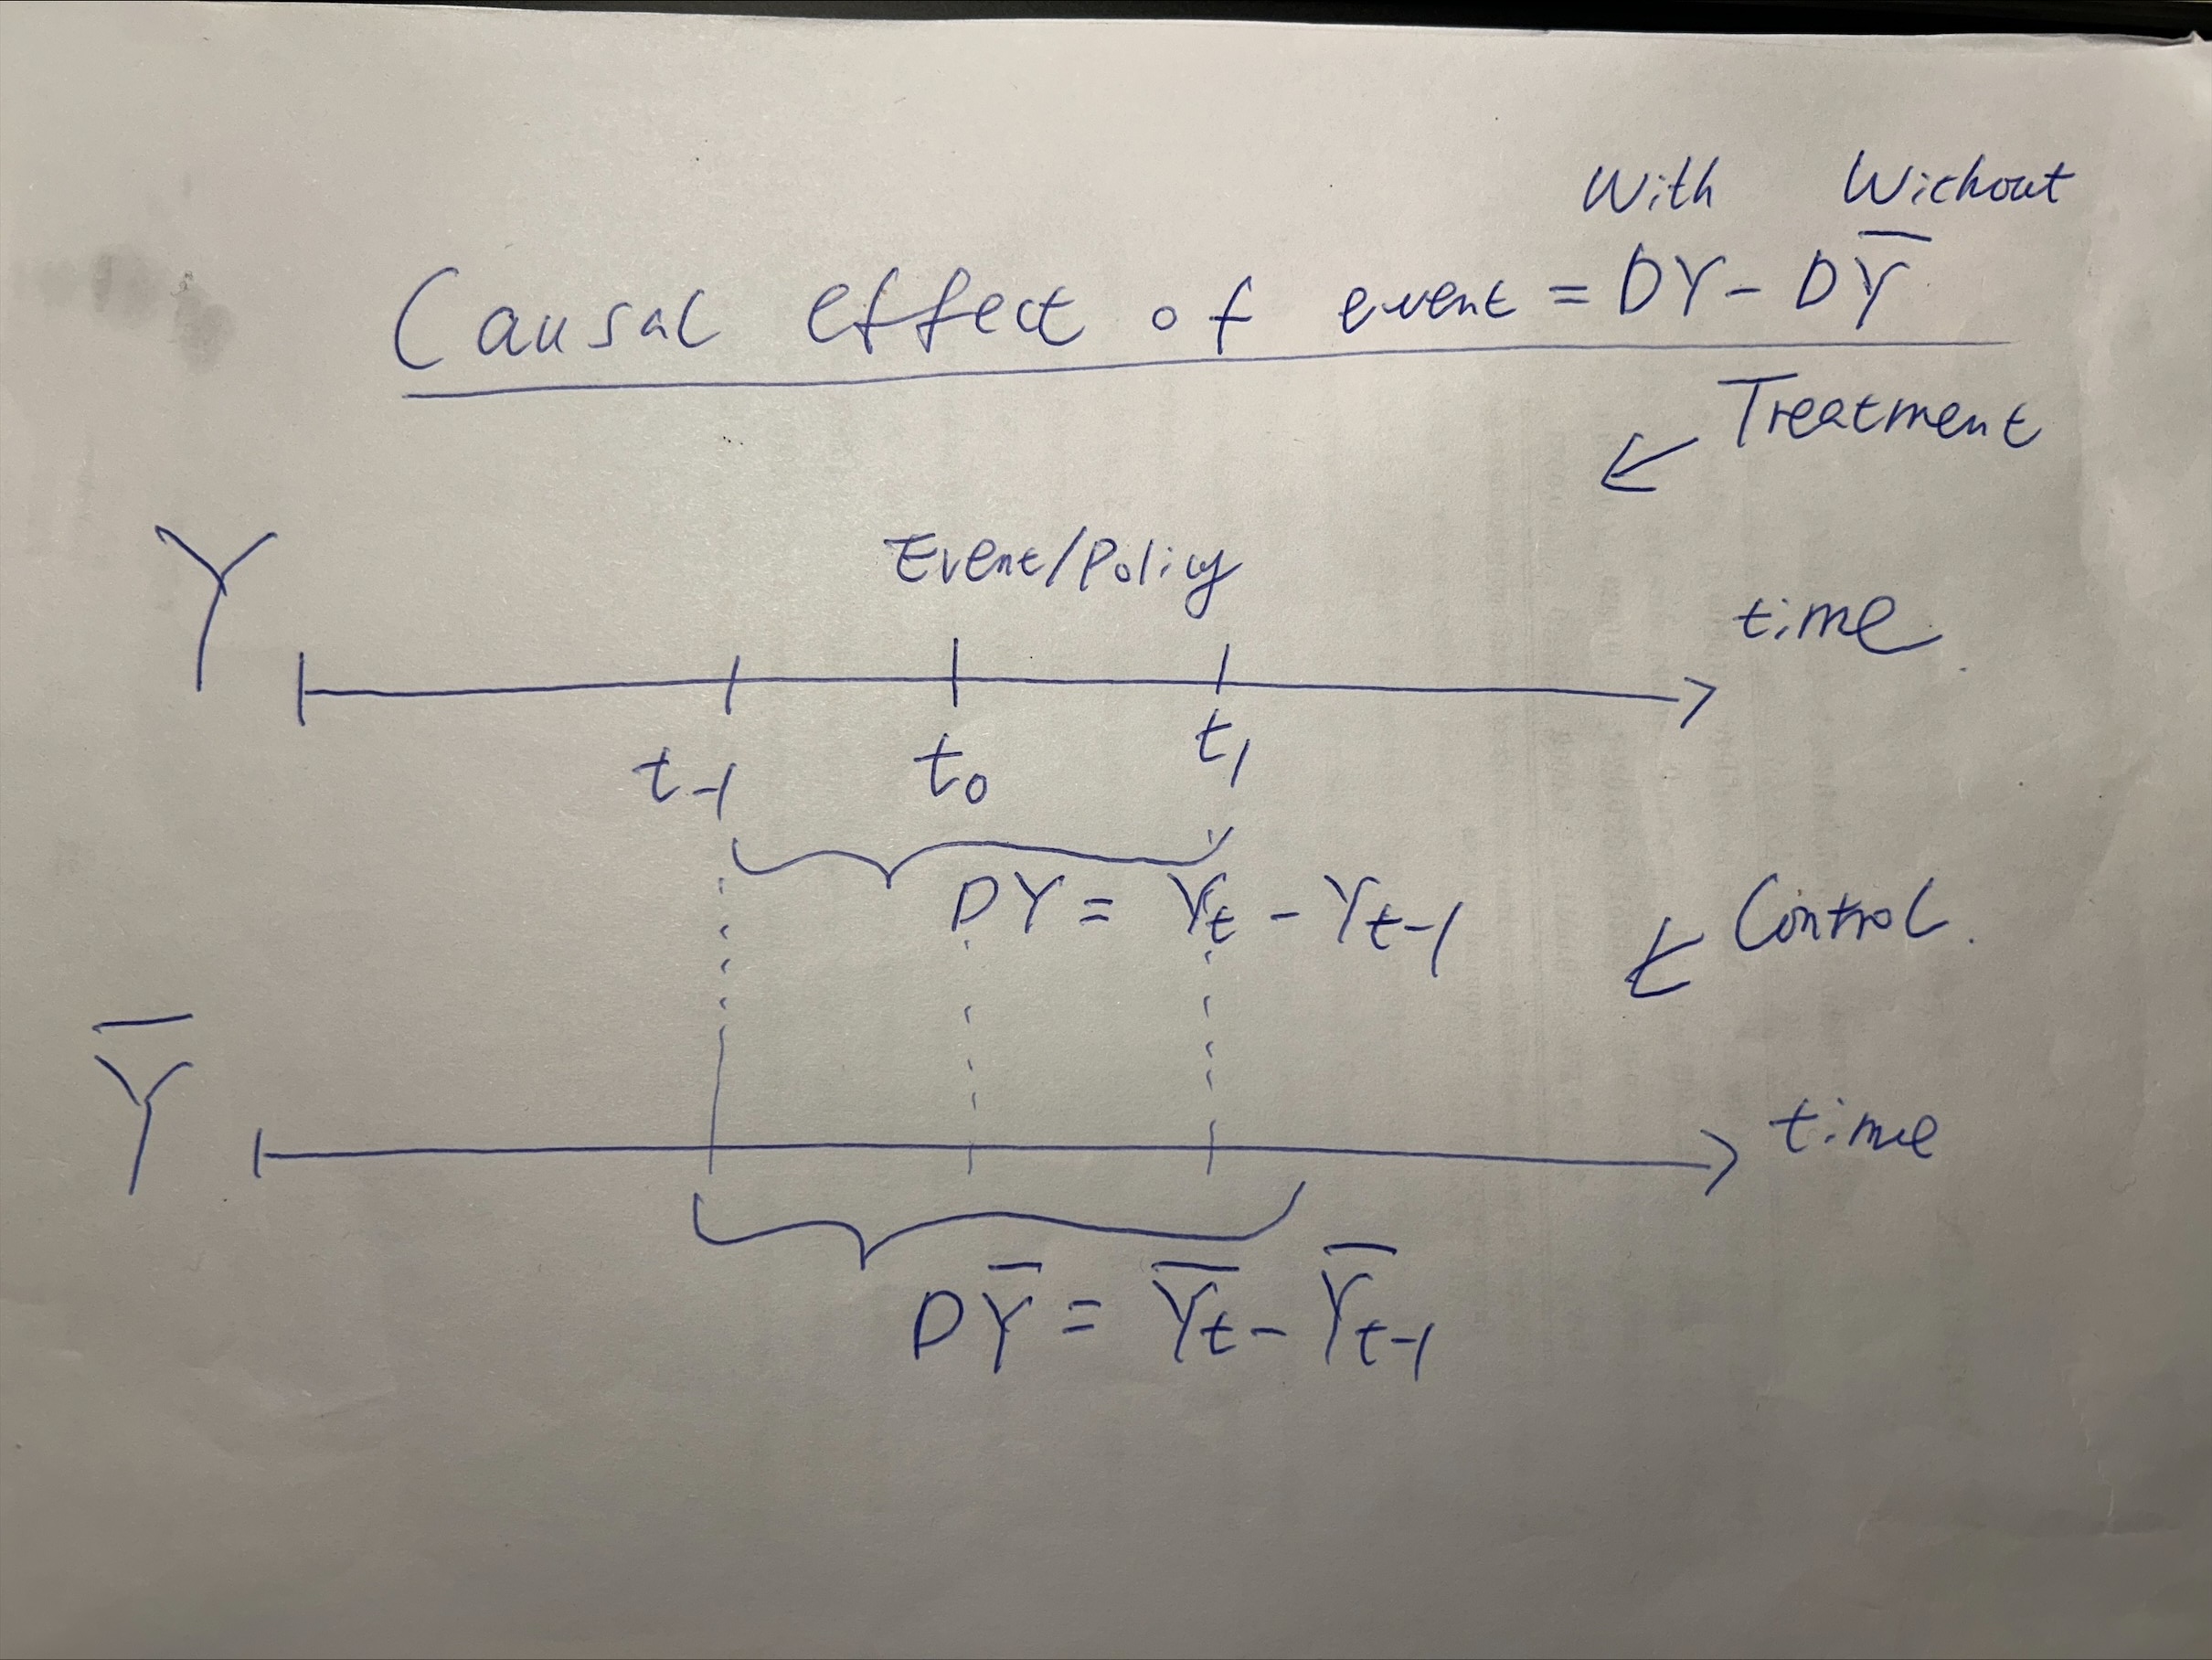 With Without
Causal effect of event = DY - DȲ
Treatment
Event/Policy
Y
time
t-1 t0 t1
DY = Yt - Yt-1
Control.
Ȳ
time
DȲ = Ȳt - Ȳt-1